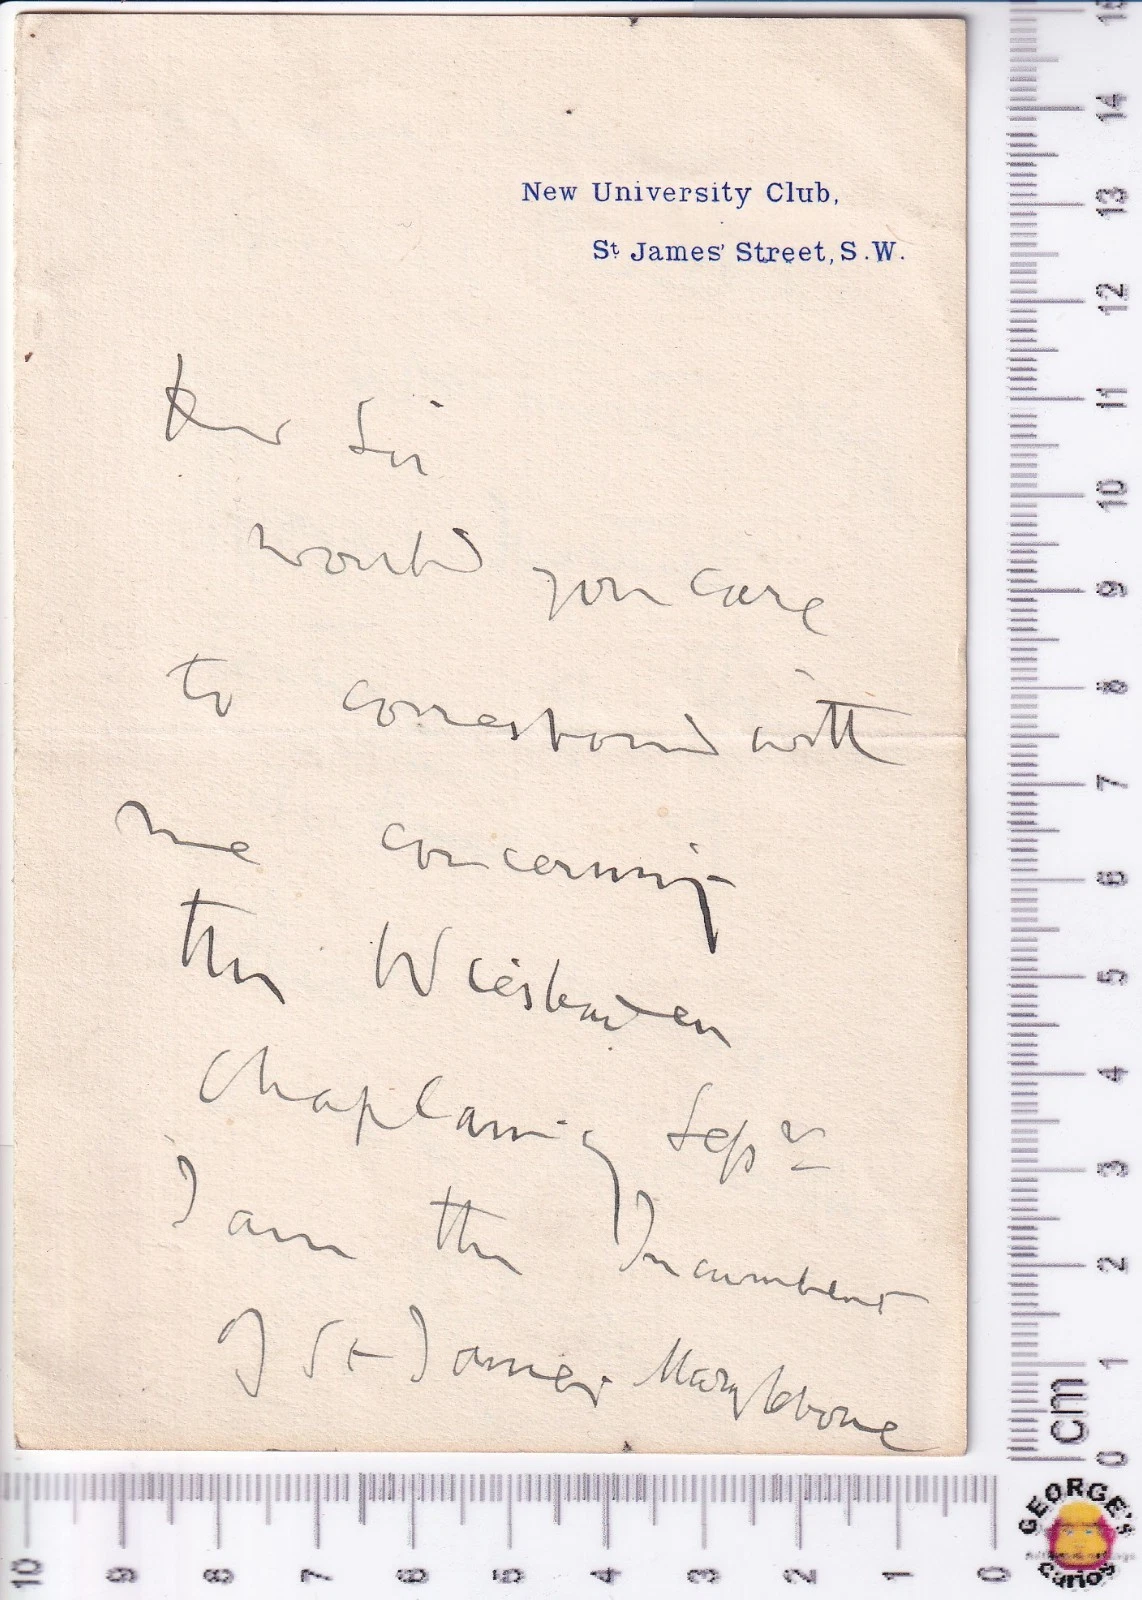 New University Club,
St James' Street, S.W.
Dear Sir
would you care
to correspond with
me concerning
the Wiesbaden
Chaplaincy Sepr
I am the Incumbent
of St James Marylebone
15
14
13
12
11
10
9
8
7
6
5
4
3
2
1
0
cm
10 9 8 7 6 5 4 3 2 1 0
GEORGE'S
Curios